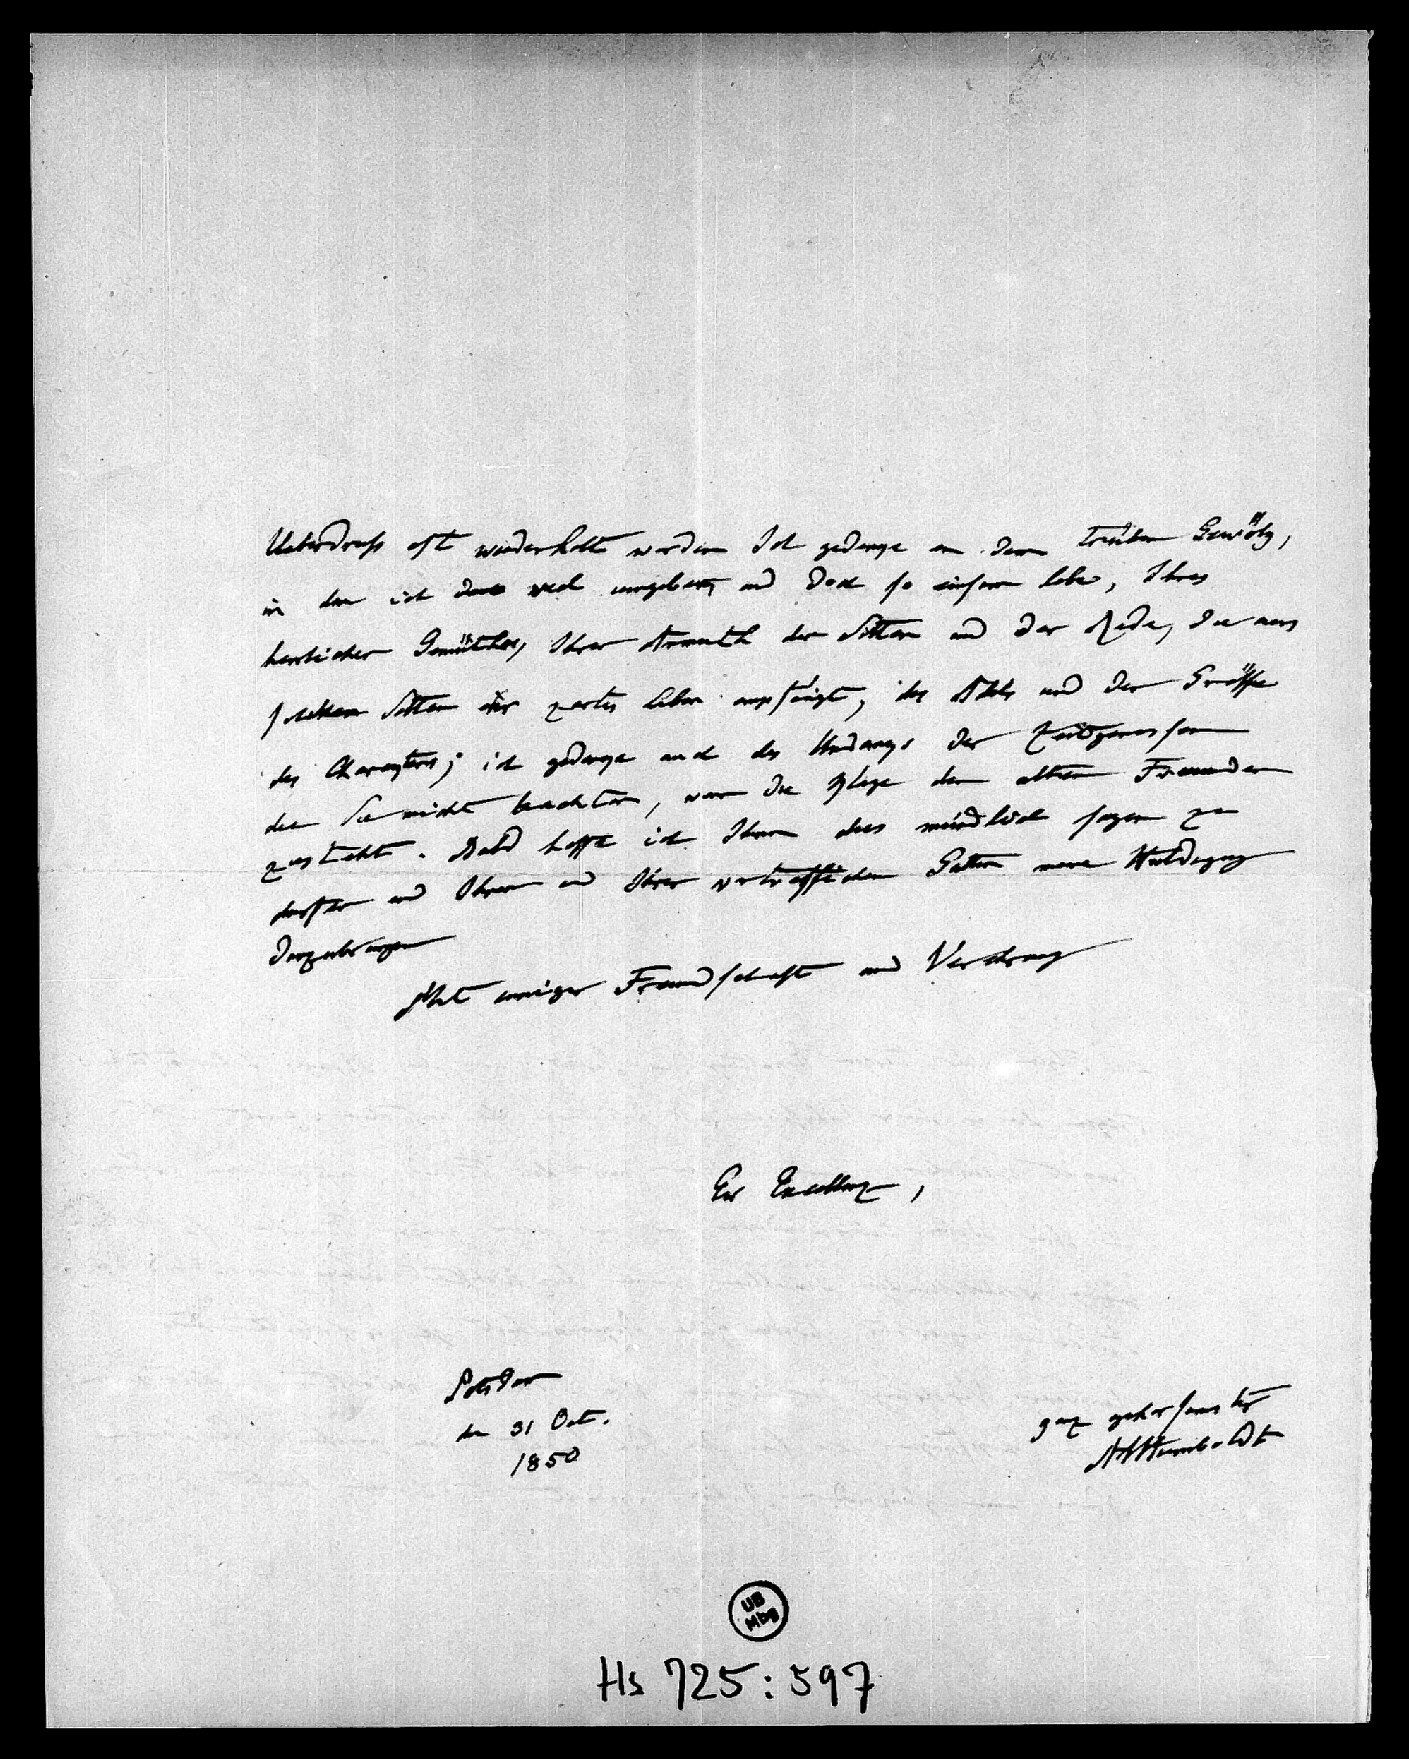 Ueberdruss oft wiederholt werden. Ich gedenke in dem trüben Gewölz,
in dem ich viel umgeben und doch so einsam lebe, Ihres
herrlichen Gemüthes, Ihrer Anmuth der Sitten und der Rede, die aus
solchen Sitten ihr zartes Leben empfängt, des Adels und der Grösse
des Charakters; ich gedenke auch des Undanks der Zeitgenossen
den Sie nicht beachten, wenn die Plage den alten Freunden
zusteht. Bald hoffe ich Ihnen dies mündlich sagen zu
dürfen und Ihnen und Ihrer vortrefflichen Gattin meine Huldigung
darzubringen
Mit inniger Freundschaft und Verehrung
Ew Excellenz,
Potsdam
den 31 Oct.
1850
ganz gehorsamster
AvHumboldt
UB
Mbg
Hs 725:597